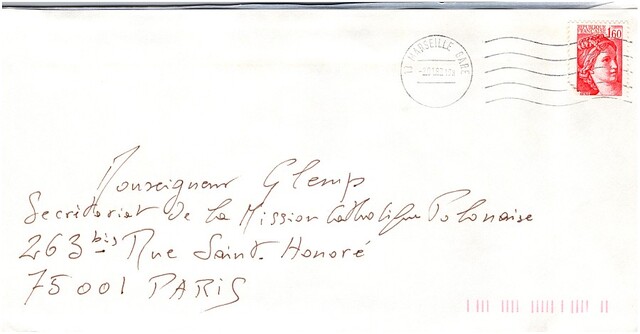 REPUBLIQUE FRANÇAISE
1,60
13 MARSEILLE GARE
Monseigneur Glemp
Secrétariat de la Mission Catholique Polonaise
263 bis Rue Saint-Honoré
75001 PARIS